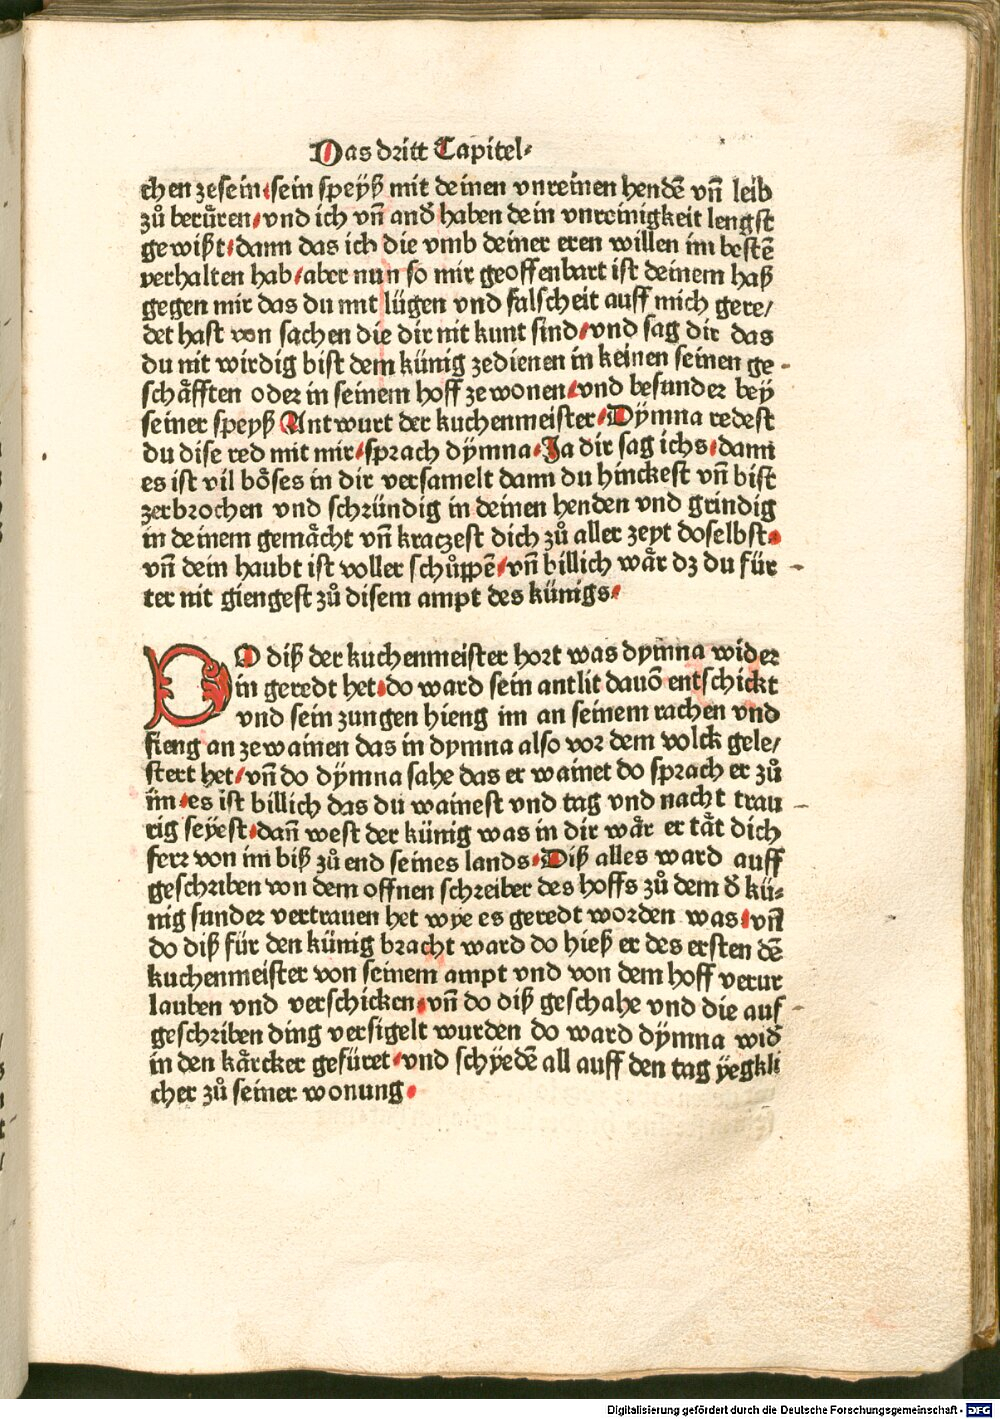 Das dritt Capitel·
chen zesein/sein speyß mit deinen vnreinen hendē vñ leib
zů berůren/vnd ich vñ anď haben dein vnreinigkeit lengst
gewißt/dann das ich die vmb deiner eren willen im bestē
verhalten hab/aber nun so mir geoffenbart ist deinem haß
gegen mir das du mit lügen vnd falscheit auff mich gere/
det hast von sachen die dir nit kunt sind/vnd sag dir das
du nit wirdig bist dem künig zedienen in keinen seinen ge-
schåfften oder in seinem hoff zewonen/vnd besunder beÿ
seiner speyß Antwurt der kuchenmeister/Dÿmna redest
du dise red mit mir/sprach dÿmna/Ja dir sag ichs/dann
es ist vil bôses in dir versamelt dann du hinckest vñ bist
zerbrochen vnd schründig in deinen henden vnd grindig
in deinem gemåcht vñ kratzest dich zů aller zeyt doselbst/
vñ dein haubt ist voller schůppē/vñ billich wår dz du für-
ter nit giengest zů disem ampt des künigs/
DO diß der kuchenmeister hort was dymna wider
in geredt het/do ward sein antlit dauō entschickt
vnd sein zungen hieng im an seinem rachen vnd
fieng an zewainen das in dymna also vor dem volck gele/
stert het/vñ do dÿmna sahe das er wainet do sprach er zů
im/es ist billich das du wainest vnd tag vnd nacht trau-
rig seÿest/dañ west der künig was in dir wår er tåt dich
ferr von im biß zů end seines lands/Diß alles ward auff
geschriben von dem offnen schreiber des hoffs zů dem ď kü-
nig sunder vertrauen het wye es geredt worden was/vñ
do diß für den künig bracht ward do hieß er des ersten dē
kuchenmeister von seinem ampt vnd von dem hoff verur
lauben vnd verschicken/vñ do diß geschahe vnd die auf-
geschriben ding versigelt wurden do ward dÿmna wiď
in den kårcker gefüret/vnd schÿedē all auff den tag ÿegkli
cher zů seiner wonung/
Digitalisierung gefördert durch die Deutsche Forschungsgemeinschaft - DFG